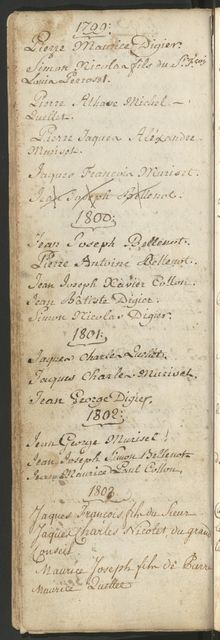 1799:
Pierre Maurice Digier.
Simon Nicolas fils du Sr. Frçois
Louis Perrost.
Pierre Alhase Michel
Quellet.
Pierre Jaques Aléxandre
Muriset.
Jaques François Muriset.
Jean Joseph Bellenot.
1800:
Jean Joseph Bellenot.
Pierre Antoine Bellenot.
Jean Joseph Xavier Collon.
Jean Batiste Digier.
Simon Nicolas Digier.
1801:
Jaques Charles Quellet.
Jaques Charles Muriset.
Jean George Digier.
1802:
Jean George Muriset.
Jean Joseph Simon Bellenot
Maurice Paul Collon.
1803
Jaques François fils du Sieur
Jaques Charles Nicolet du grand
Conseil
Maurice Joseph fils de Pierre
Maurice Quellet